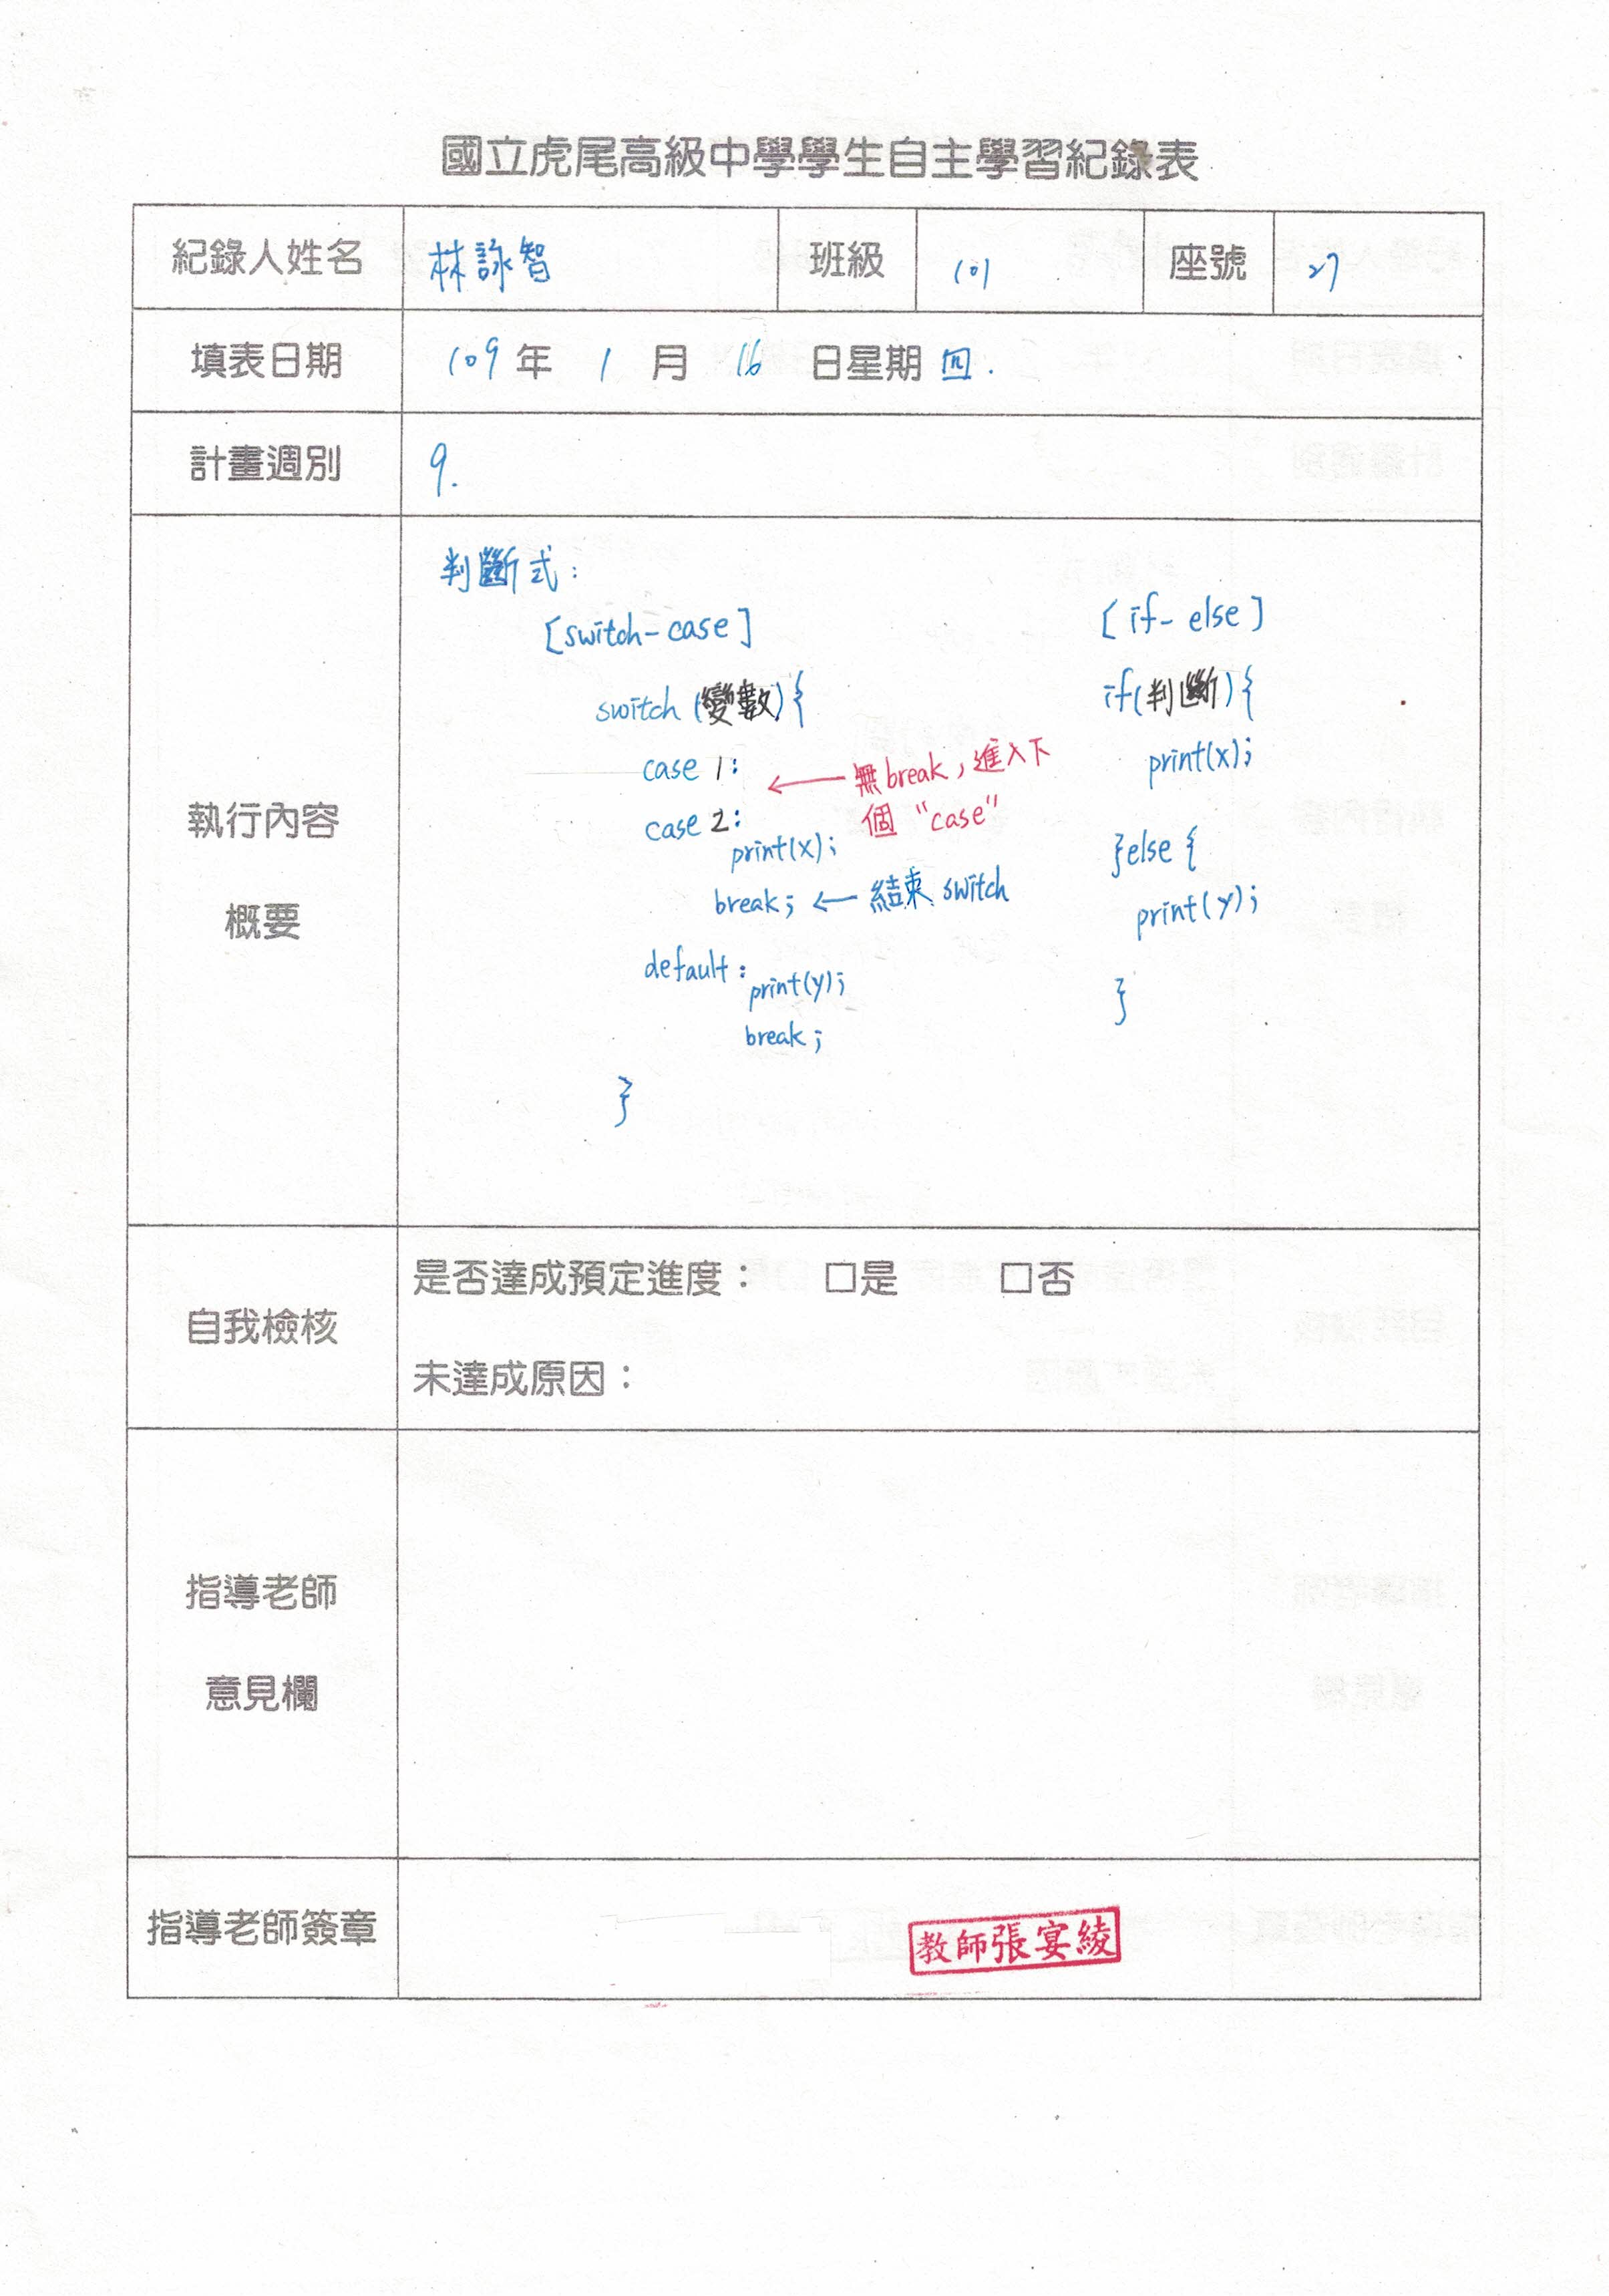 國立虎尾高級中學學生自主學習紀錄表
紀錄人姓名 林詠智 班級 101 座號 27
填表日期 109 年 1 月 16 日星期 四.
計畫週別 9.
執行內容
概要
判斷式:
[switch-case]
switch (變數) {
case 1:
← 無break, 進入下
個 "case"
case 2:
print(x);
break; ← 結束 switch
default:
print(y);
break;
}
[if-else]
if(判斷) {
print(x);
}else {
print(y);
}
自我檢核
是否達成預定進度： □是 □否
未達成原因：
指導老師
意見欄
指導老師簽章
教師張宴綾